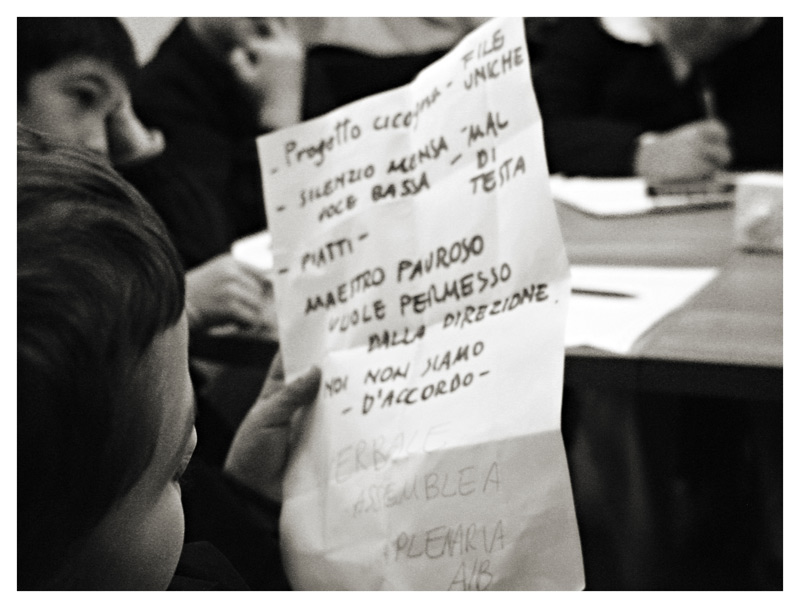 - Progetto cicogna - FILE UNICHE
- SILENZIO MENSA - MAL DI TESTA
VOCE BASSA
- PIATTI -
MAESTRO PAUROSO
VUOLE PERMESSO
DALLA DIREZIONE.
NOI NON SIAMO
- D'ACCORDO -
VERBALE
ASSEMBLEA
PLENARIA
A/B